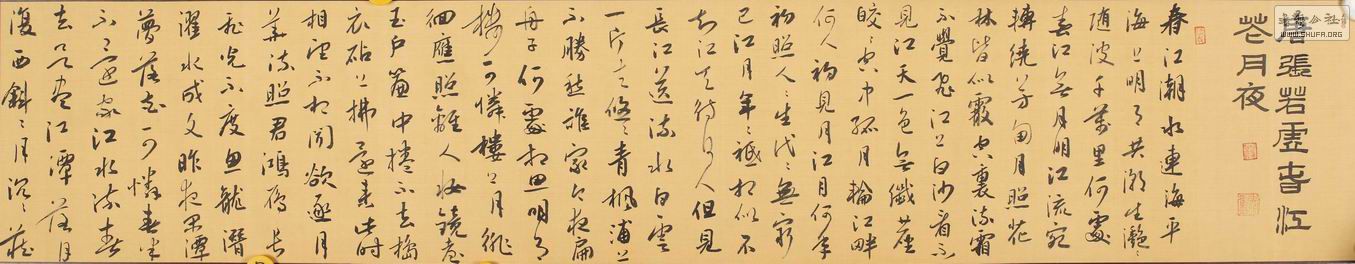 唐張若虛春江
花月夜
春江潮水連海平
海上明月共潮生灩々
隨波千萬里何處
春江無月明江流宛
轉繞芳甸月照花
林皆似霰空裏流霜
不覺飛汀上白沙看不
見江天一色無纖塵
皎々空中孤月輪江畔
何人初見月江月何年
初照人々生代々無窮
已江月年々祗相似不
知江月待何人但見
長江送流水白雲
一片去悠々青楓浦上
不勝愁誰家今夜扁
舟子何處相思明月
樓可憐樓上月徘
徊應照離人妝鏡臺
玉戶簾中捲不去擣
衣砧上拂還來此時
相望不相聞欲逐月
華流照君鴻雁長
飛光不度魚龍潛
躍水成文昨夜閑潭
夢落花可憐春半
不還家江水流春
去欲盡江潭落月
復西斜々月沉々藏
WWW.SHUFA.ORG